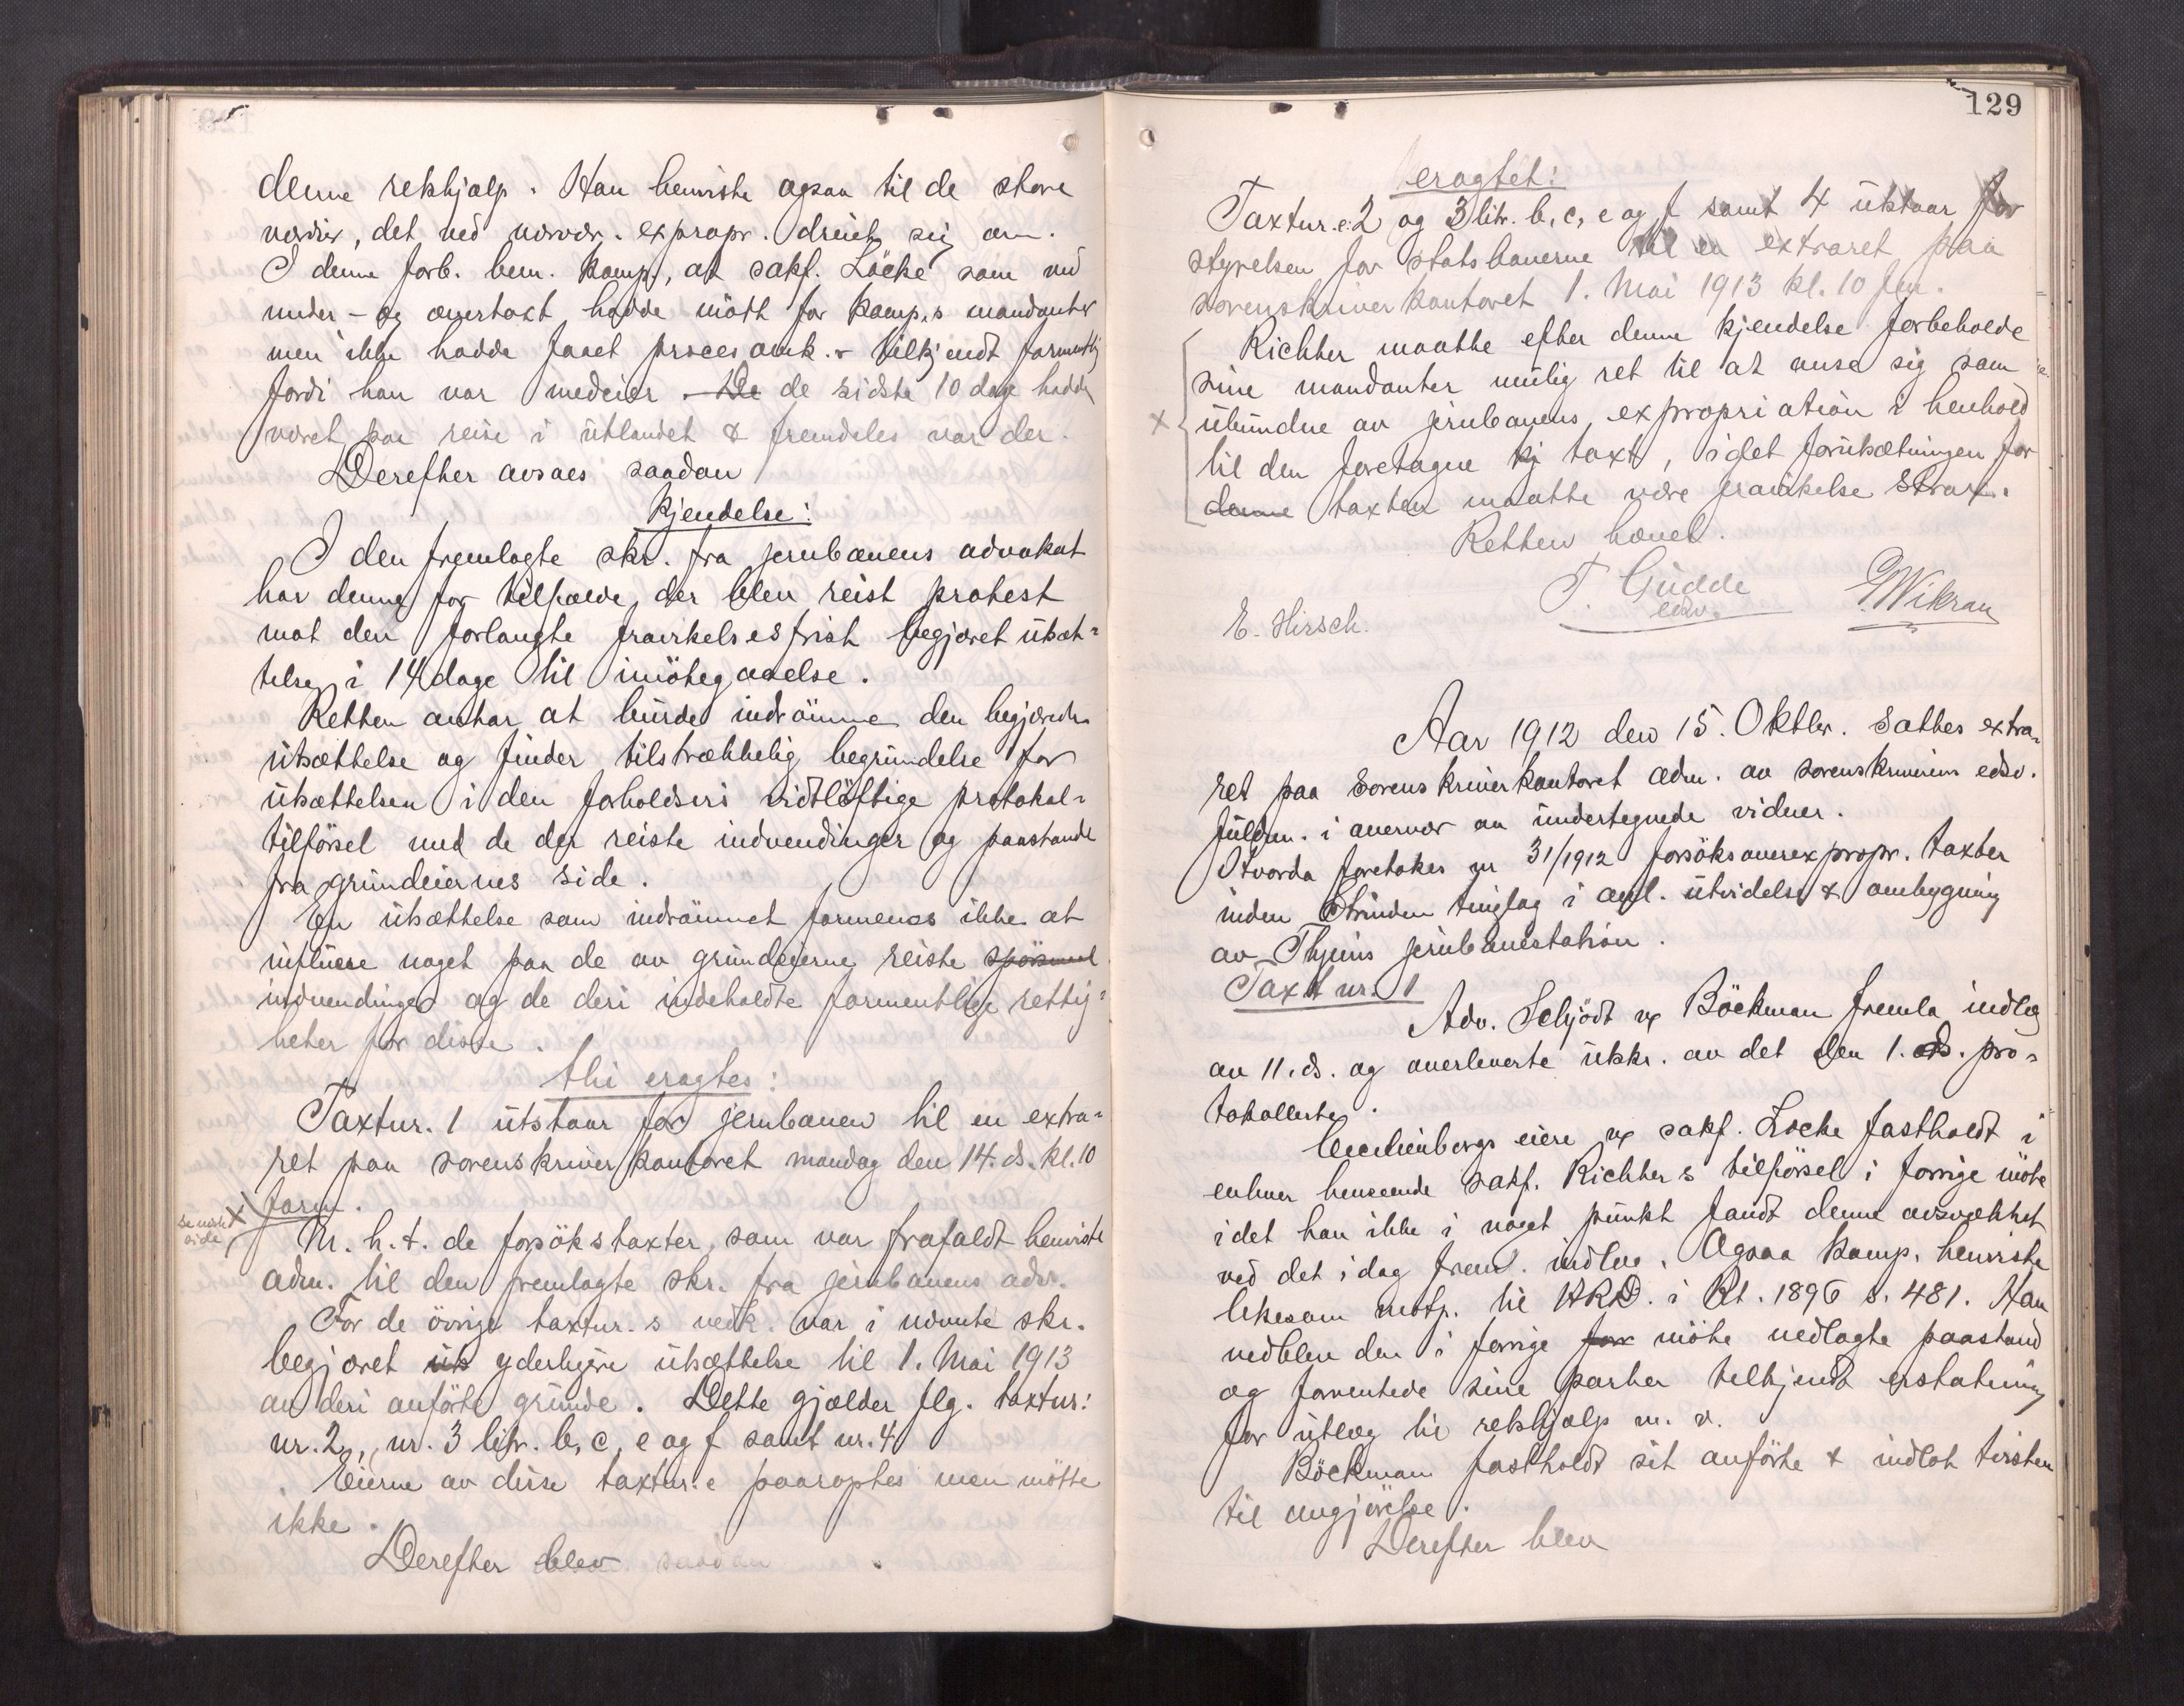 denne retshjælp. Han henviste ogsaa til de store
værdier, det ved nærvær. expropr. dreiet sig om.
I denne forb. bem. Kamp., at sakf. Löcke som ved
under- og overtaxt hadde mött for Kamp.s mandanter
men ikke hadde faaet procesomk. tilkjendt formentlig
fordi han var medeier. De de sidste 10 dage hadde
været paa reise i utlandet & fremdeles var der.
Derefter avsaes saadan
Kjendelse:
I den fremlagte skr. fra jernbanens advokat
har denne for tilfælde, der blev reist protest
mot den forlangte fravikelsesfrist begjæret utsæt-
telse i 14 dage til imötegaaelse.
Retten antar at burde indrömme den begjærede
utsættelse og finder tilstrækkelig begrundelse for
utsættelsen i den forholdsvis vidtlöftige protokol-
tilförsel med de der reiste indvendinger og paastande
fra grundeiernes side.
En utsættelse som indrömmet formenes ikke at
influere noget paa de av grundeierne reiste spörsmaal
indvendinger og de deri indeholdte formentlige rettig-
heter for disse.
thi eragtes:
Taxtnr. 1 utstaar for jernbanen til en extra-
ret paa sorenskriverkontoret mandag den 14. ds. kl. 10
form.
se neste side
M. h. t. de forsökstaxter, som var frafaldt henviste
adm. til den fremlagte skr. fra jernbanens adv.
For de övrige taxtnr.s vedk. var i nævnte skr.
begjæret uts yderligere utsættelse til 1. Mai 1913
av deri anförte grunde. Dette gjælder flg. taxtnr:
nr. 2, nr. 3 litr. b, c, e og f samt nr. 4
Eierne av disse taxtnr.e paaroptes men mötte
ikke.
Derefter blev saadan
129
eragtet:
Taxtnr.e 2 og 3 litr. b, c, e og f samt 4 utstaar for
styrelsen for statsbanerne til en extraret paa
sorenskriverkontoret 1. Mai 1913 kl. 10 fm.
Richter maatte efter denne kjendelse forbeholde
sine mandanter mulig ret til at anse sig som
ubundne av jernbanens expropriation i henhold
til den foretagne kj taxt, idet forutsætningen for
denne taxten maatte være fravikelse strax.
Retten hævet.
T. Gudde
edsv.
G. Wikran
E. Hirsch.
Aar 1912 den 15. Oktbr. sattes extra-
ret paa Sorenskriverkontoret adm. av sorenskriverens edsv.
fuldm. i overvær av undertegnede vidner.
Hvorda foretokes nr 31/1912 forsöksoverexpropr. taxter
inden Strinden tinglag i anl. utvidelse & ombygning
av Thjems jernbanestation.
Taxt nr. 1
Adv. Schjödt v/ Böckman fremla indlæg
av 11. ds. og overleverte utskr. av det den 1. ds. pro-
tokollerte.
Ceciliénborgs eiere v/ sakf. Löcke fastholdt i
enhver henseende sakf. Richters tilförsel i forrige möte
idet han ikke i noget punkt fandt denne avsvækket
ved det idag freml. indlæg. Ogsaa Kamp. henviste
likesom motp. til HRD. i Rt. 1896 s. 481. Han
vedblev den i forrige for möte nedlagte paastand
og forventede sine parter tilkjendt erstatning
for utlæg til retshjælp m. v.
Böckman fastholdt sit anförte & indlot tvisten
til avgjörelse.
Derefter blev